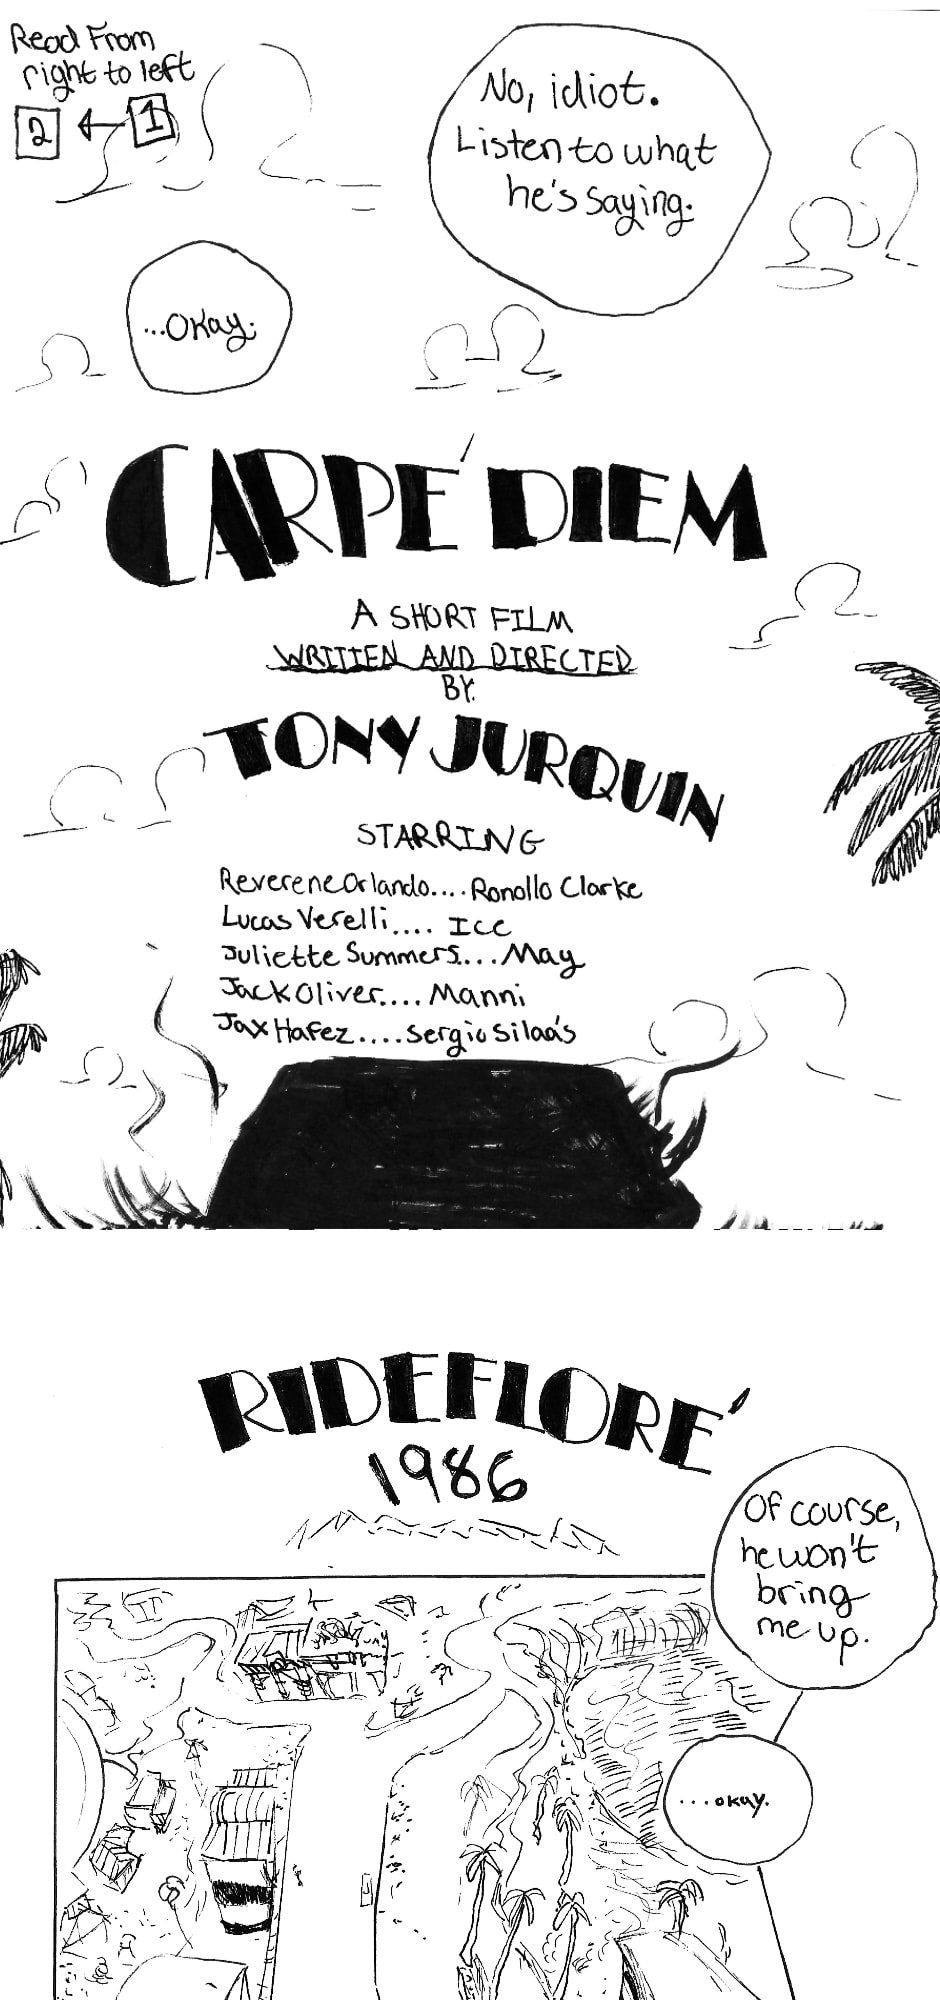 Read From
right to left
2 ← 1
No, idiot.
Listen to what
he's saying.
...Okay.
CARPE' DIEM
A SHORT FILM
WRITTEN AND DIRECTED
BY:
TONY JURQUIN
STARRING
Reverene Orlando.... Ronollo Clarke
Lucas Verelli.... Ice
Juliette Summers.... May
Jack Oliver.... Manni
Jax Hafez.... Sergio Silaa's
RIDEFLORE'
1986
Of course,
he won't
bring
me up.
...okay.